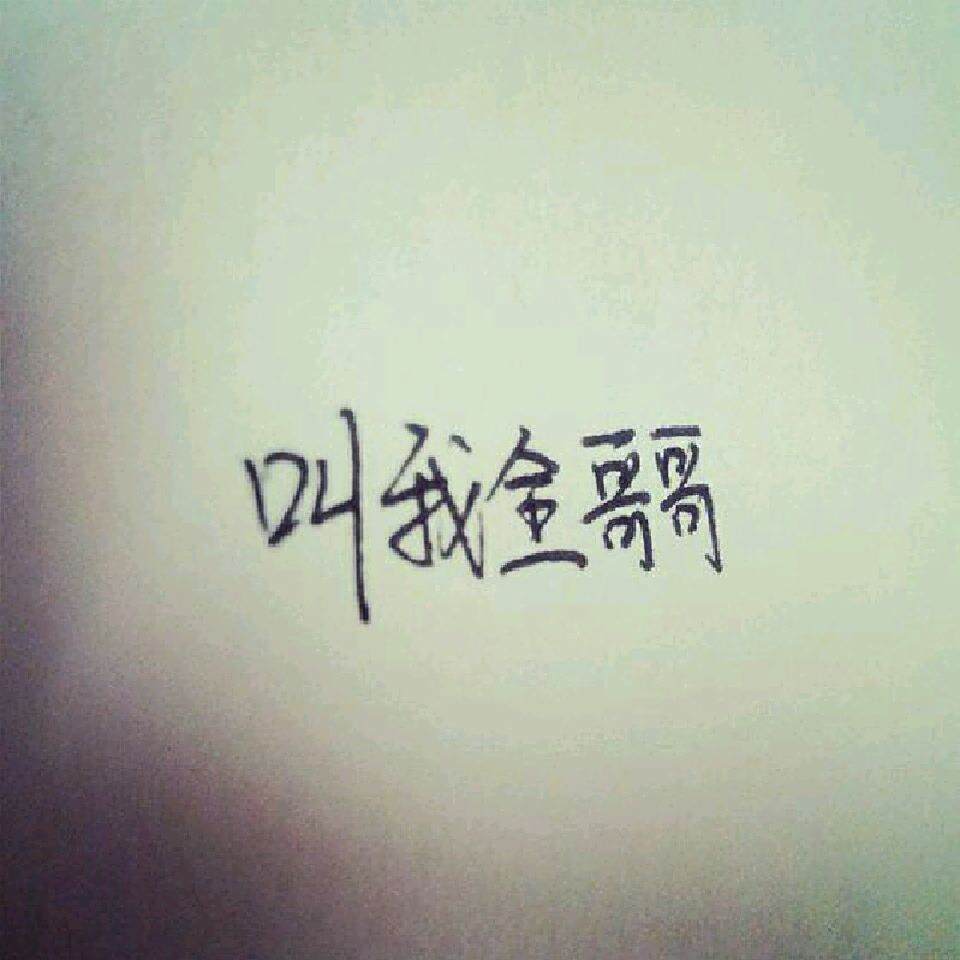 叫我全哥哥